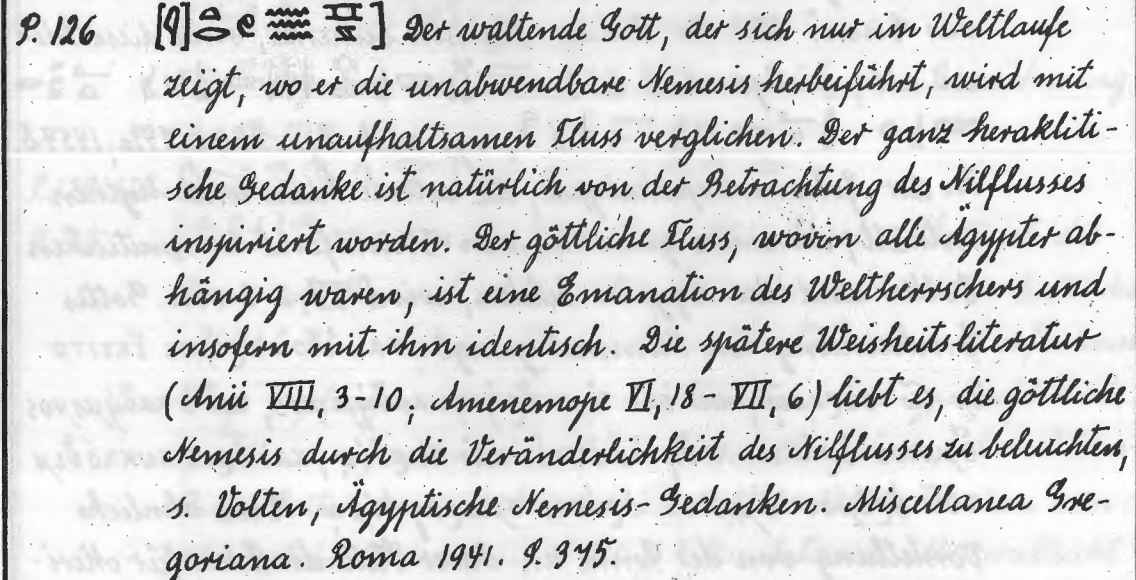 P. 126 [𓇋]𓏏𓂋𓏲𓈗 ] Der waltende Gott, der sich nur im Weltlaufe
zeigt, wo er die unabwendbare Nemesis herbeiführt, wird mit
einem unaufhaltsamen Fluss verglichen. Der ganz herakliti-
sche Gedanke ist natürlich von der Betrachtung des Nilflusses
inspiriert worden. Der göttliche Fluss, wovon alle Ägypter ab-
hängig waren, ist eine Emanation des Weltherrschers und
insofern mit ihm identisch. Die spätere Weisheitsliteratur
(Anii VIII, 3-10; Amenemope VI, 18 - VII, 6) liebt es, die göttliche
Nemesis durch die Veränderlichkeit des Nilflusses zu beleuchten,
s. Volten, Ägyptische Nemesis-Gedanken. Miscellanea Gre-
goriana. Roma 1941. S. 375.